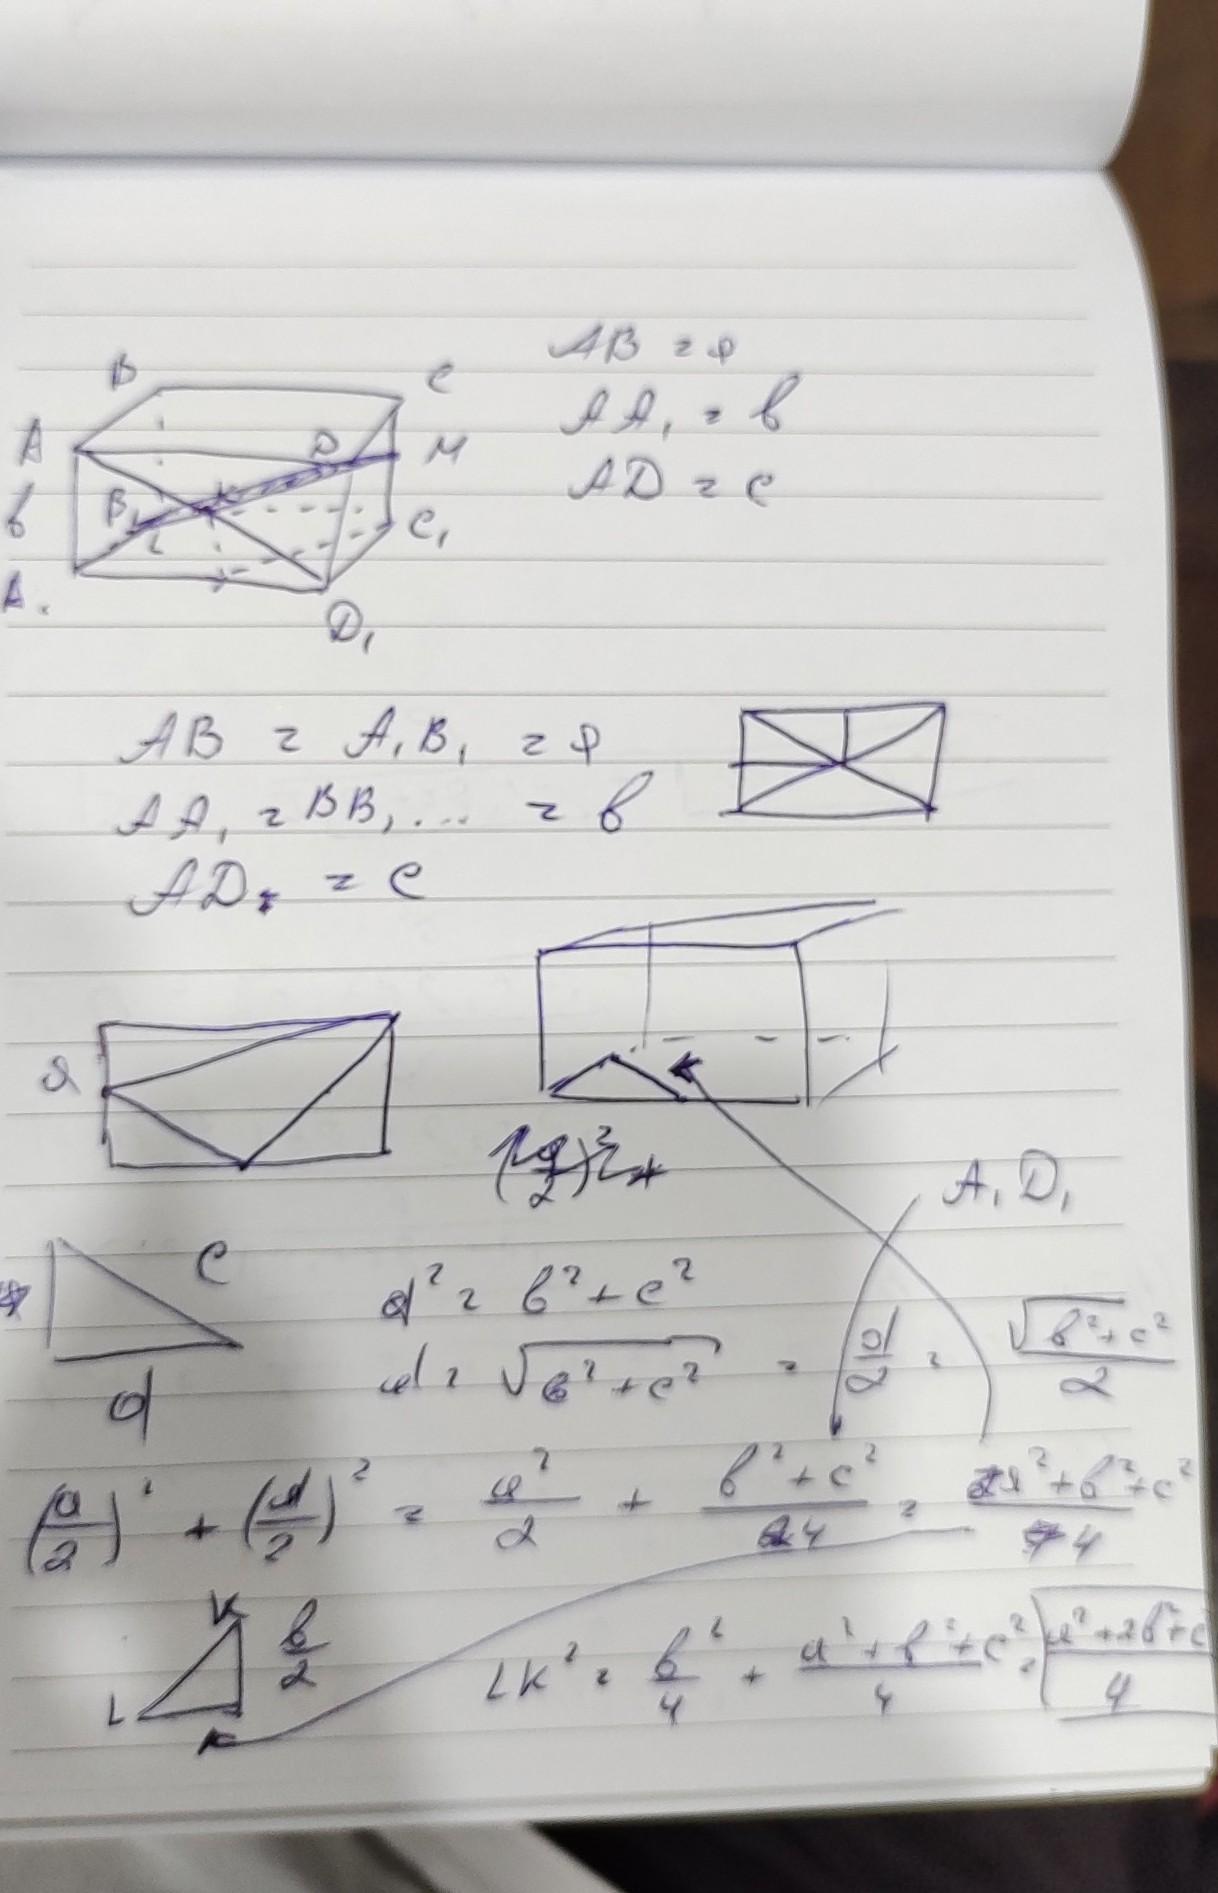 B C
A D M
в K
B₁ L C₁
A₁
D₁
AB = a
AA₁ = в
AD = c
AB = A₁B₁ = a
AA₁ = BB₁ ... = в
AD = c
a
A₁D₁
c
d
d² = в² + c²
d = √(в² + c²) = d/2 = √(в² + c²)/2
(a/2)² + (d/2)² = a²/2 + (в² + c²)/4 = (a² + в² + c²)/4
K в/2
L K
LK² = в²/4 + (a² + в² + c²)/4 = √((a² + 2в² + c²)/4)